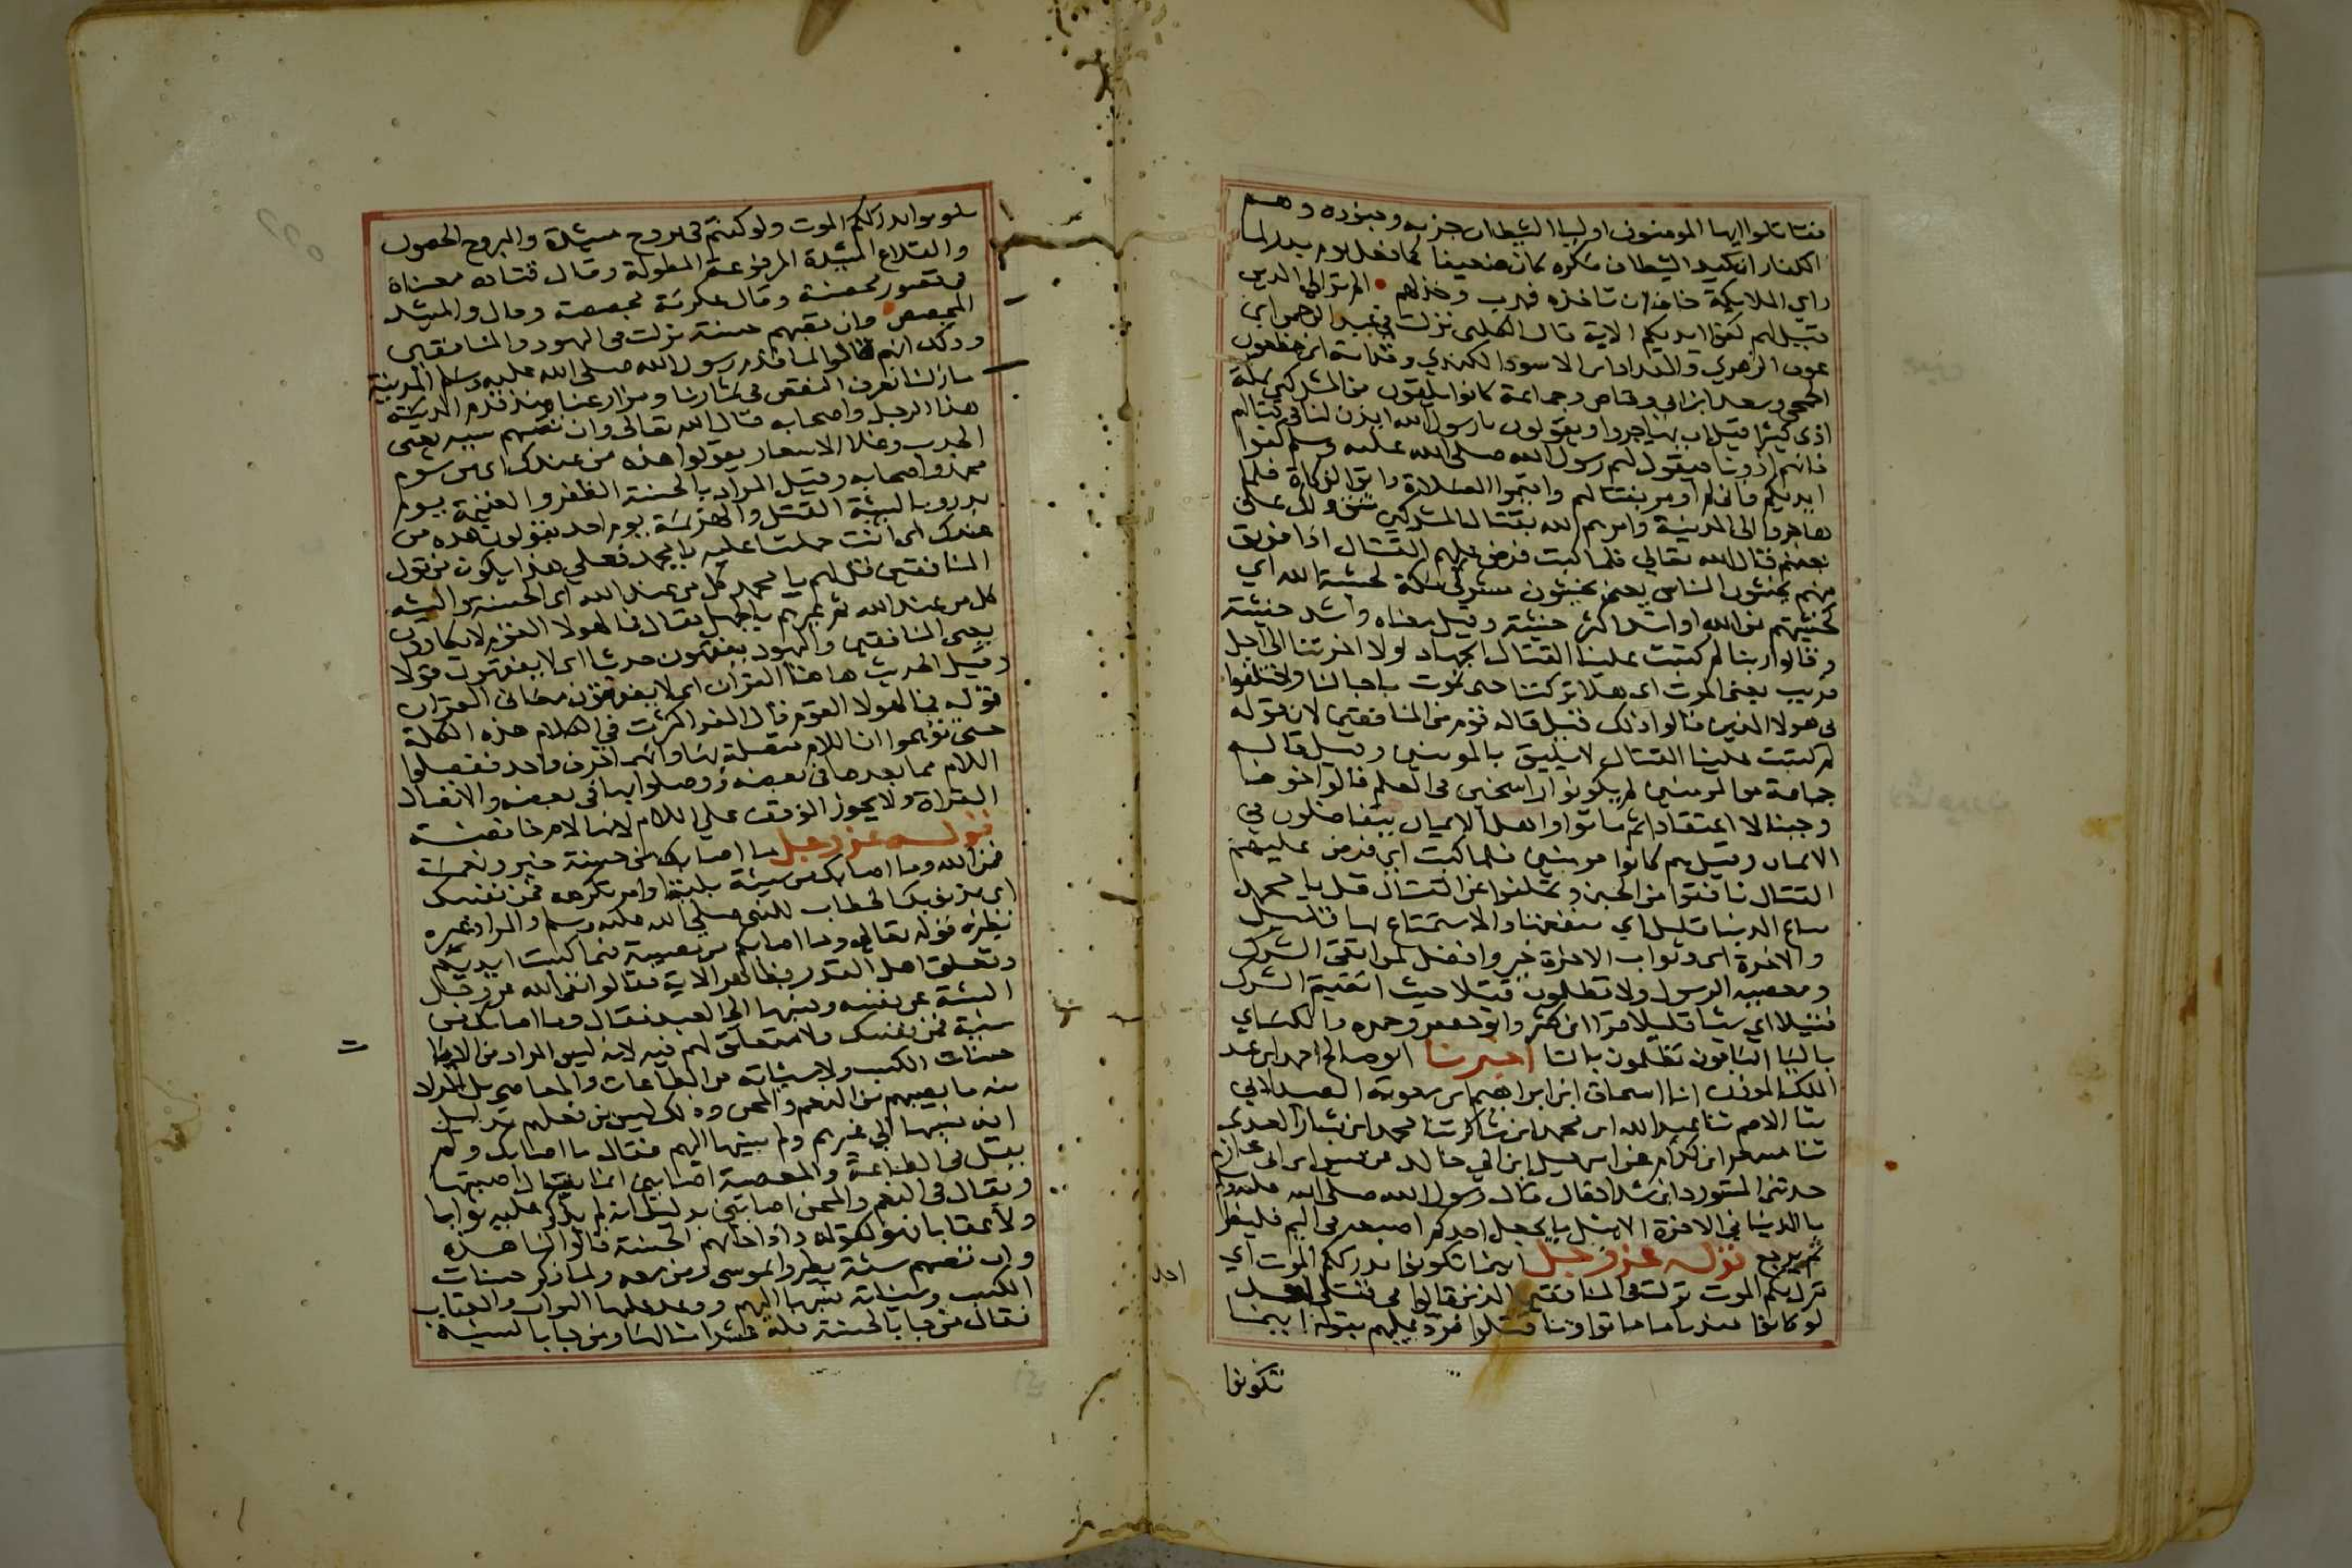 فقاتلوا ايها المومنون اوليا الشيطان حزبه وجنوده وهم
الكفار ان كيد الشيطان مكره كان ضعيفا كما فعل يوم بدر لما
راي الملايكة خاف ان تاخذه فهرب وخذلهم الم تر الي الدين
قيل لهم كفوا ايديكم الاية قال الكلبي نزلت في عبد الرحمن ابن
عوف الزهري والمقداد ابن الاسود الكندي وقدامة ابن مظعون
الجمحي وسعد ابن ابي وقاص وجماعة كانوا يلقون من المشركين بمكة
اذى كثيرا قبل ان يهاجروا ويقولون يا رسول الله ايذن لنا في قتالهم
فانهم اذونا فيقول لهم رسول الله صلى الله عليه وسلم كفوا
ايديكم فاني لم اومر بقتالهم واقيموا الصلاة واتوا الزكاة فلما
هاجروا الى المدينة وامرهم الله بقتال المشركين شق ذلك على
بعضهم قال الله تعالي فلما كتب فرض عليهم القتال اذا فريق
منهم يخشون الناس يعني يخشون مشركي مكة كخشية الله اي
كخشيتهم من الله او اشد اكثر خشية وقيل معناه واشد خشية
وقالوا ربنا لم كتبت علينا القتال الجهاد لولا اخرتنا الى اجل
قريب يعني الموت اي هلا تركتنا حتى نموت باجالنا واختلفوا
في هولا الذين قالوا ذلك فقيل قاله قوم من المنافقين لان قوله
لم كتبت علينا القتال لا يليق بالمومنين وقيل قاله
جماعة من المومنين لم يكونوا راسخين في العلم قالوا خوفا
وجبنا لا اعتقادا ثم تابوا واهل الايمان يتفاضلون في
الايمان وقيل هم كانوا مومنين فلما كتب اي فرض عليهم
القتال نافقوا من الجبن وتخلفوا عن القتال قل يا محمد
متاع الدنيا قليل اي منفعتها والاستمتاع بها قليل
والاخرة اي وثواب الاخرة خير وافضل لمن اتقى الشرك
ومعصية الرسول ولا تظلمون فتيلا حيث اتقيتم الشرك
فتيلا اي شيا قليلا قرا ابن كثير وابو جعفر وحمزه والكساي
باليا الباقون تظلمون بالتا اخبرنا ابو صالح احمد ابن عبد
الملك الموذن انا اسحاق ابن ابراهيم ابن معوية الصيدلاني
ثنا الاصم ثنا عبد الله ابن محمد ابن شاكر ثنا محمد ابن بشار العبدي
ثنا مسعر ابن كدام عن اسمعيل ابن ابي خالد عن قيس ابن ابي حازم
حدثني المستورد ابن شداد قال قال رسول الله صلى الله عليه وسلم
ما الدنيا في الاخرة الا مثل ما يجعل احدكم اصبعه في اليم فلينظر
بم يرجع قوله عز وجل اينما تكونوا يدرككم الموت اي
ينزل بكم الموت نزلت في المنافقين الذين قالوا في قتلى احد
لو كانوا عندنا ما ماتوا وما قتلوا فرد عليهم بقوله اينما
تكونوا
تكونوا يدرككم الموت ولو كنتم في بروج مشيدة والبروج الحصون
والقلاع المشيدة المرفوعة المطولة وقال قتاده معناه
في قصور محصنة وقال عكرمة مجصصة وقال والمشيد
المجصص وان تصبهم حسنة نزلت في اليهود والمنافقين
وذلك انهم قالوا لما قدم رسول الله صلى الله عليه وسلم المدينة
ما زلنا نعرف النقص في ثمارنا ومزارعنا منذ قدم المدينة
هذا الرجل واصحابه قال الله تعالى وان تصبهم سيه يعني
الجدب وغلا الاسعار يقولوا هذه من عندك اي من شوم
محمد واصحابه وقيل المراد بالحسنة الظفر والغنيمة يوم
بدر وبالسيئة القتل والهزيمة يوم احد يقولون هذه من
عندك اي انت حملتنا عليه يا محمد فعلي هذا يكون من قول
المنافقين قل لهم يا محمد كل من عند الله اي الحسنة والسيئه
كل من عند الله ثم عيرهم بالجهل فقال فما لهولا القوم لا يكادون
يعني المنافقين واليهود يفقهون حديثا اي لا يفقهون قولا
وقيل الحديث هاهنا القران اي لا يفقهون معاني القران
قوله فما لهولا القوم قال الفرا كثرت في الكلام هذه الكلمة
حتى توهموا ان اللام متصلة بها وانهما حرف واحد ففصلوا
اللام مما بعدها في بعضه ووصلوا بها في بعضه والاتصال
القراة ولا يجوز الوقف على اللام لانها لام خافضة
قوله عز وجل ما اصابك من حسنة خير ونعمة
فمن الله وما اصابك من سيئة بلية او امر تكرهه فمن نفسك
اي بذنوبك الخطاب للنبي صلى الله عليه وسلم والمراد غيره
نظيره قوله تعالى وما اصابكم من مصيبة فبما كسبت ايديكم
وتعلق اهل القدر بظاهر الاية فقالوا نفى الله عز وجل
السيئة عن نفسه ونسبها الى العبد فقال وما اصابك من
سيئة فمن نفسك ولا متعلق لهم فيه لانه ليس المراد من الاية
حسنات الكسب ولا سيئاته من الطاعات والمعاصي بل المراد
منه ما يصيبهم من النعم والمحن وذلك ليس من فعلهم بدليل
انه نسبها الى غيرهم ولم ينسبها اليهم فقال ما اصابك ولم
يقل في الطاعة والمعصية اصابني انما يقال اصبتها
ويقال في النعم والمحن اصابتني بدليل انه لم يذكر عليه ثوابا
ولا عقابا فهو كقوله واذا جاتهم الحسنة قالوا لنا هذه
وان تصبهم سيئة يطيروا بموسى ومن معه ولما ذكر حسنات
الكسب وسيئاته نسبها اليهم ووعد عليها الثواب والعقاب
فقال من جا بالحسنة فله عشر امثالها ومن جا بالسيئة
احد